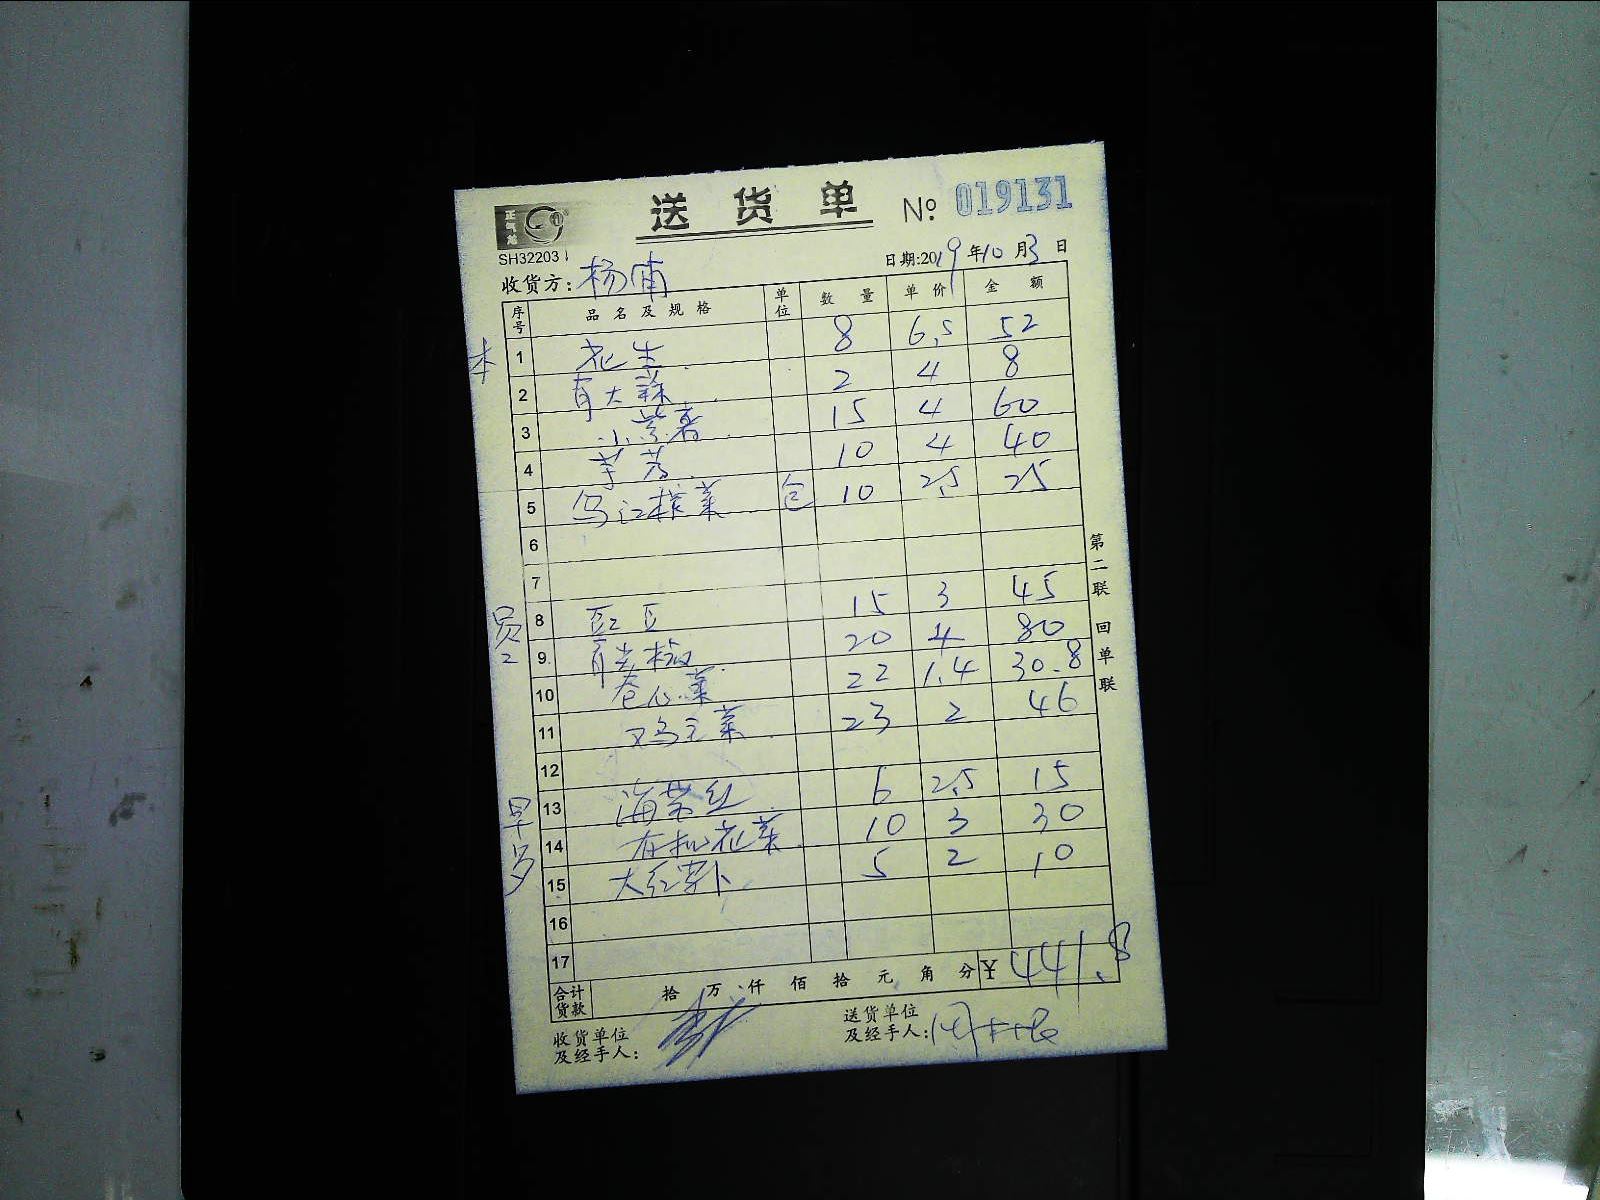 正气龙
送货单 № 019131
SH32203
日期:2019年10月3日
收货方:杨浦
序号 品名及规格 单位 数量 单价 金额
本
1 花生 8 6.5 52
2 青大蒜 2 4 8
3 小紫薯 15 4 60
4 芋艿 10 4 40
5 乌江榨菜 包 10 2.5 25
6
7
员工
8 豇豆 15 3 45
9 青尖椒 20 4 80
10 卷心菜 22 1.4 30.8
11 鸡毛菜 23 2 46
12
早
13 海带红 6 2.5 15
14 有机花菜 10 3 30
15 大红萝卜 5 2 10
16
17
合计货款 拾万仟佰拾元角分 ¥441.8
收货单位及经手人:
送货单位及经手人:
第二联 回单联